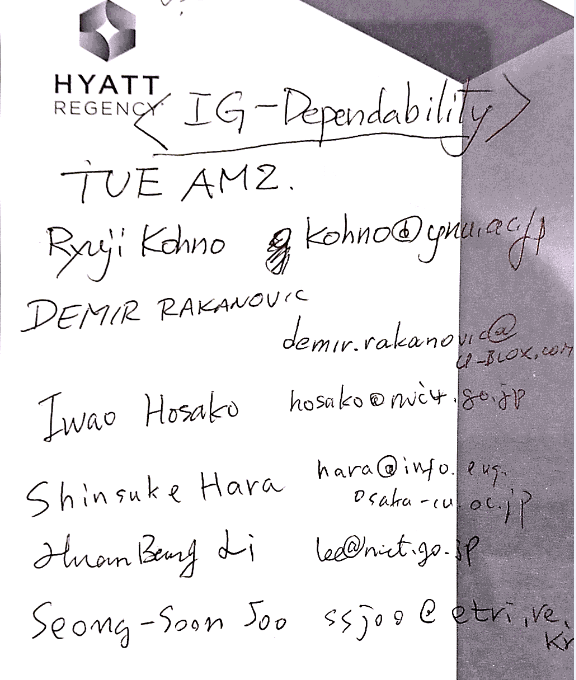 HYATT
REGENCY
<IG-Dependability>
TUE AM2.
Ryuji Kohno kohno@ynu.ac.jp
DEMIR RAKANOVIC
demir.rakanovic@
u-BLOX.com
Iwao Hosako hosako@nict.go.jp
Shinsuke Hara hara@info.eng.
osaka-cu.ac.jp
Huan Bang Li lee@nict.go.jp
Seong-Soon Joo ssjoo@etri.re.
kr